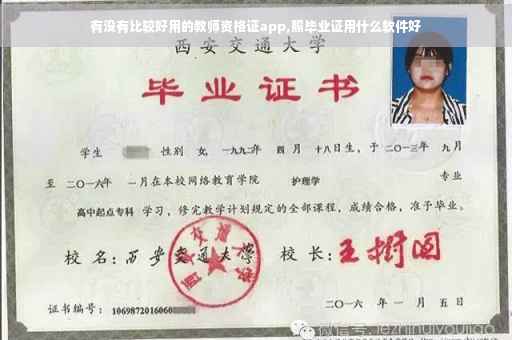 有没有比较好用的教师资格证app,照毕业证用什么软件好
西安交通大学
毕业证书
学生 性别 女, 一九九二年 四月 十八日生, 于二〇一三年 九月
至 二〇一六年 一月在本校网络教育学院 护理学 专业
高中起点专科 学习, 修完教学计划规定的全部课程, 成绩合格, 准予毕业。
校 名: 西安交通大学 校 长: 王树国
西安交通大学
二〇一六 年 一 月 五 日
证书编号: 1069872016060
微信号: jiezhihuiyoujiao